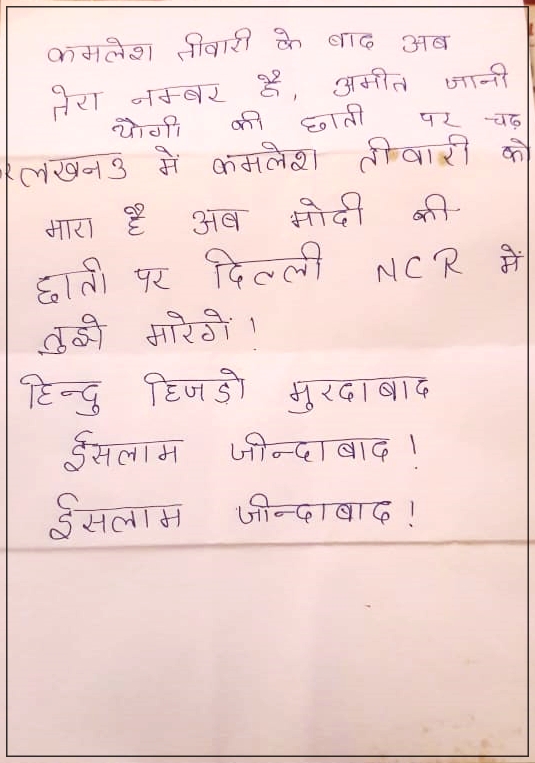 कमलेश तीवारी के बाद अब
तेरा नम्बर है, अमीत जानी
योगी की छाती पर चढ़
र लखनउ में कमलेश तीवारी को
मारा है अब मोदी की
छाती पर दिल्ली NCR में
तुझे मारेगें!
हिन्दु हिजड़ो मुरदाबाद
ईसलाम जीन्दाबाद!
ईसलाम जीन्दाबाद!